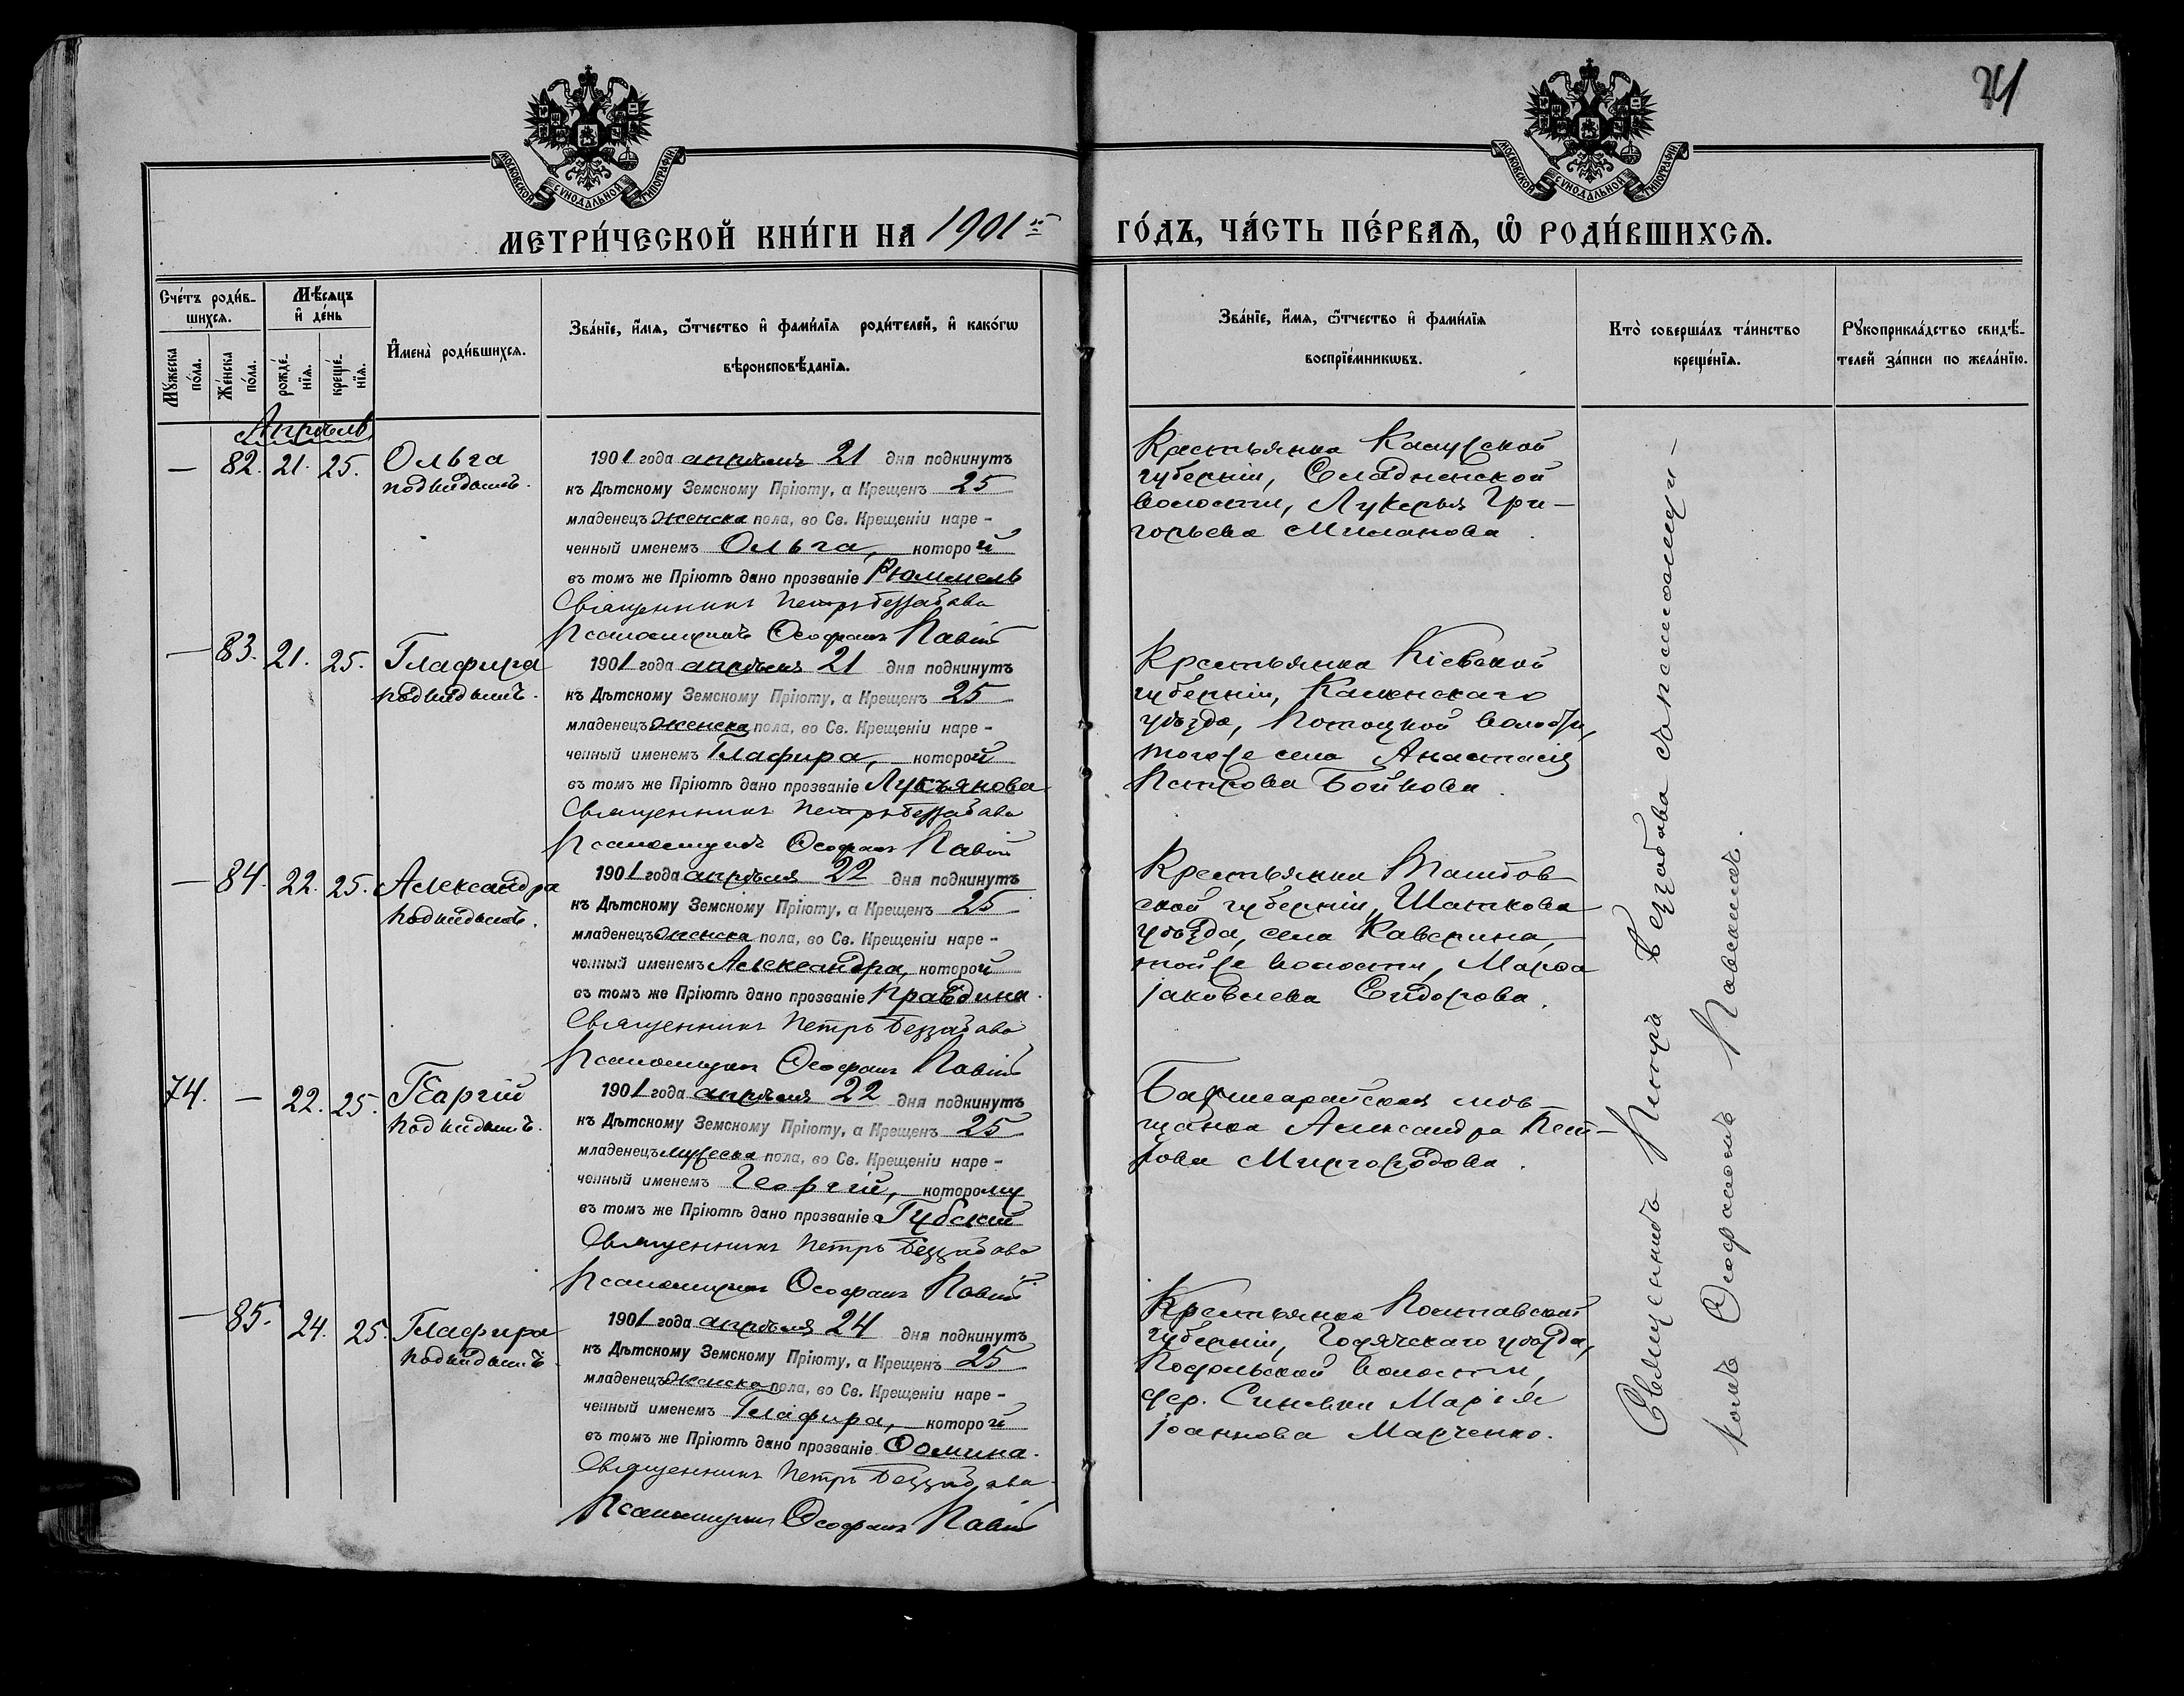 21
МОСКОВСКОЙ СѴНОДАЛЬНОЙ ТИПОГРАФІИ
МОСКОВСКОЙ СѴНОДАЛЬНОЙ ТИПОГРАФІИ
МЕТРИ́ЧЕСКОЙ КНИ́ГИ НА 1901й
ГО́ДЪ, ЧА́СТЬ ПЕ́РВАѦ, Ѡ҆ РОДИ́ВШИХСѦ.
Сче́тъ роди́в-
шихсѧ.
Мѣ́сѧцъ
и҆ де́нь
Мꙋ́жеска
по́ла.
Же́нска
по́ла.
рожде́-
нїѧ.
креще́-
нїѧ.
И҆мена̀ роди́вшихсѧ.
Зва́нїе, и҆́мѧ, ѻ҆́тчество и҆ фами́лїѧ роди́телей, и҆ како́гѡ
вѣроисповѣ́данїѧ.
Зва́нїе, и҆́мѧ, ѻ҆́тчество и҆ фами́лїѧ
воспрїе́мникѡвъ.
Кто̀ соверша́лъ та́инство
креще́нїѧ.
Рꙋкоприкла́дство свидѣ́-
телей за́писи по жела́нїю.
Апрѣль
— 82. 21. 25. Ольга
подкидышъ.
1901 года апрѣля 21 дня подкинутъ
къ Дѣтскому Земскому Пріюту, а Крещенъ 25
младенецъ женска пола, во Св. Крещеніи наре-
ченный именемъ Ольга, которой
въ томъ же Пріютѣ дано прозваніе Рюммель
Священникъ Петръ Беззабава
Псаломщикъ Ѳеофанъ
Крестьянка Калужской
губерніи,
волости, Лукерья Гри-
горьева Миланова.
— 83. 21. 25. Глафира
подкидышъ.
1901 года апрѣля 21 дня подкинутъ
къ Дѣтскому Земскому Пріюту, а Крещенъ 25
младенецъ женска пола, во Св. Крещеніи наре-
ченный именемъ Глафира, которой
въ томъ же Пріютѣ дано прозваніе Лукьянова
Священникъ Петръ Беззабава
Псаломщикъ Ѳеофанъ
Крестьянка Кіевской
губерніи, Каменскаго
уѣзда, Потоцкой волости,
того же села Анастасія
Петрова Бойкова.
— 84. 22. 25. Александра
подкидышъ.
1901 года апрѣля 22 дня подкинутъ
къ Дѣтскому Земскому Пріюту, а Крещенъ 25
младенецъ женска пола, во Св. Крещеніи наре-
ченный именемъ Александра, которой
въ томъ же Пріютѣ дано прозваніе Правдина.
Священникъ Петръ Беззабава
Псаломщикъ Ѳеофанъ
Крестьянка Тамбов-
ской губерніи, Шатскова
уѣзда, села Каверина,
той же волости, Марѳа
Іаковлева Сидорова.
74. — 22. 25. Георгій
подкидышъ.
1901 года апрѣля 22 дня подкинутъ
къ Дѣтскому Земскому Пріюту, а Крещенъ 25
младенецъ мужеска пола, во Св. Крещеніи наре-
ченный именемъ Георгій, которому
въ томъ же Пріютѣ дано прозваніе Губскій
Священникъ Петръ Беззабава
Псаломщикъ Ѳеофанъ
Бахчисарайская мѣ-
щанка Александра Пет-
рова Миргородова.
— 85. 24. 25. Глафира
подкидышъ.
1901 года апрѣля 24 дня подкинутъ
къ Дѣтскому Земскому Пріюту, а Крещенъ 25
младенецъ женска пола, во Св. Крещеніи наре-
ченный именемъ Глафира, которой
въ томъ же Пріютѣ дано прозваніе Ѳомина.
Священникъ Петръ Беззабава
Псаломщикъ Ѳеофанъ
Крестьянка Полтавской
губерніи, Гадячскаго уѣзда,
волости,
дер. Синевки Марія
Іоаннова Марченко.
Священникъ Петръ Беззабава съ псаломщи-
комъ Ѳеофаномъ